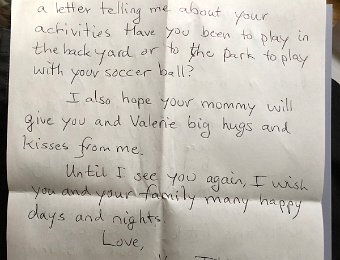 a letter telling me about your
activities Have you been to play in
the back yard or to the park to play
with your soccer ball?
I also hope your mommy will
give you and Valerie big hugs and
kisses from me.
Until I see you again, I wish
you and your family many happy
days and nights.
Love,